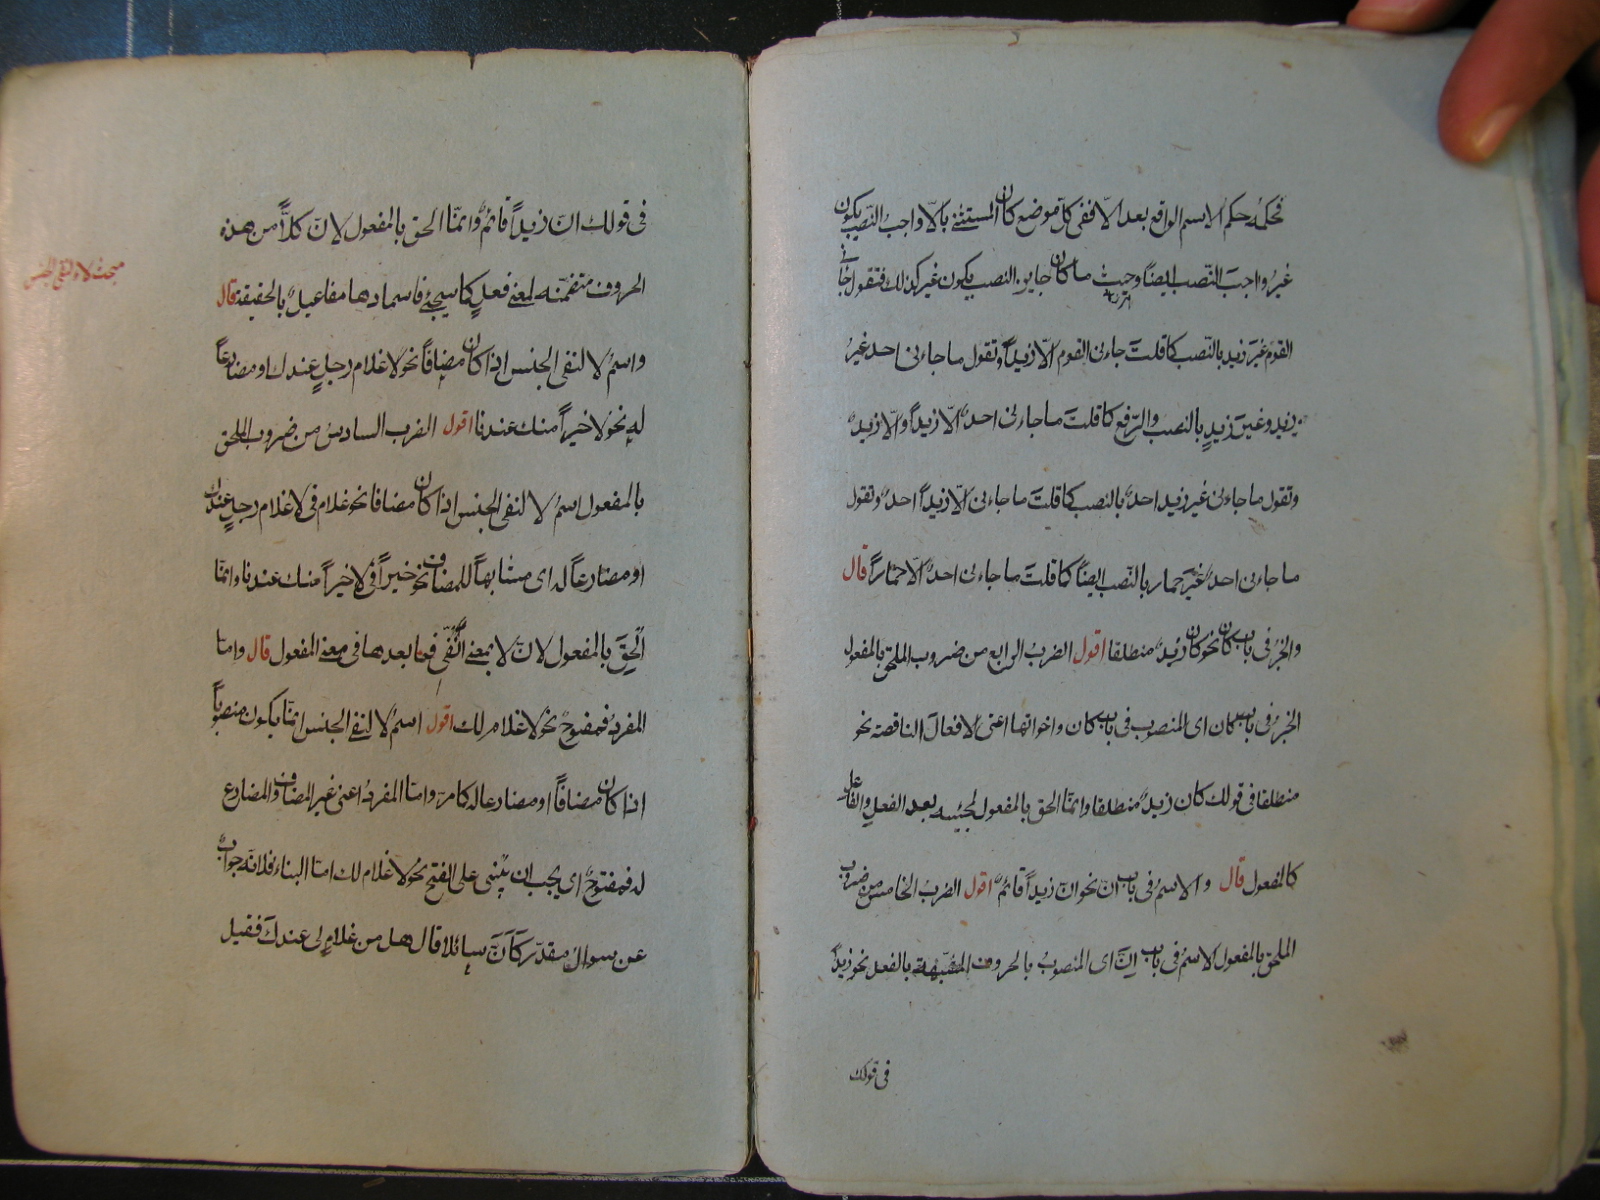 فحكمه حكم الاسم الواقع بعد الّا ففى كلّ موضع كان المستثنى بالّا واجب النّصب يكون
غيرُ واجبَ النّصب ايضًا وحيث ما كان جايز النصب يكون غير كذلك فتقول جاءنى
القوم غيرَ زيدٍ بالنّصب كما قلتَ جاءنى القوم الّا زيداً وتقول ما جاءنى احد غيرُ
زيد وغيرَ زيدٍ بالنصب والرّفع كما قلت ما جاءنى احدٌ الّا زيداً والّا زيدٌ
وتقول ما جاءنى غير زيد احدٌ بالنصب كما قلتَ ما جاءنى الّا زيداً احدٌ وتقول
ما جاءنى احدٌ غيرَ حمار بالنّصب ايضًا كما قلتَ ما جاءنى احدٌ الّا حماراً قال
والخبرُ فى باب كان نحو كان زيدٌ منطلقا اقول الضربُ الرابع من ضروب الملحق بالمفعول
الخبر فى باب كان اى المنصوب فى باب كان واخواتها اعنى الافعالَ الناقصة نحو
منطلقا فى قولك كان زيدٌ منطلقا وانّما الحق بالمفعول لمجيئه بعد الفعل والفاعل
كالمفعول قال والاسمُ فى باب انّ نحو انّ زيداً قائمٌ اقول الضربُ الخامس من ضروب
الملحق بالمفعول الاسمُ فى باب انّ اى المنصوبُ بالحروف المشبّهة بالفعل نحو زيداً
فى قولك
فى قولك انّ زيداً قائمٌ وانمّا الحق بالمفعول لانّ كلاًّ من هذه
الحروف متضمّنه لمعنى فعلٍ كما سيجئ فاسماؤها مفاعيلٌ بالحقيقة قال
مبحث لاء لنفى الجنس
واسمُ لا لنفى الجنس اذا كان مضافاً نحو لا غلام رجلٍ عندك او مضارعاً
له نحو لا خيراً منك عندنا اقول الضرب السادس من ضروب الملحق
بالمفعول اسمُ لا لنفى الجنس اذا كان مضافا نحو غلام فى لا غلام رجلٍ عندك
او مضارعاً له اى مشابهاً للمضاف نحو خيراً فى لا خيراً منك عندنا وانمّا
اُلحِقَ بالمفعول لانّ لا بمعنى النّفى فما بعدها فى معنى المفعول قال وامّا
المفردُ فمفتوحٌ نحو لا غلام لك اقول اسمُ لا لنفى الجنس انمّا يكون منصوباً
اذا كان مضافاً او مضارعا له كما مرّ وامّا المفردُ اعنى غير المضاف والمضارع
له فمفتوحٌ اى يجب ان يبنى على الفتح نحو لا غلام لك امّا البناء فلانّه جوابٌ
عن سوالٍ مقدّر كأنّ سائلا قال هل من غلامٍ لى عندك فقيل